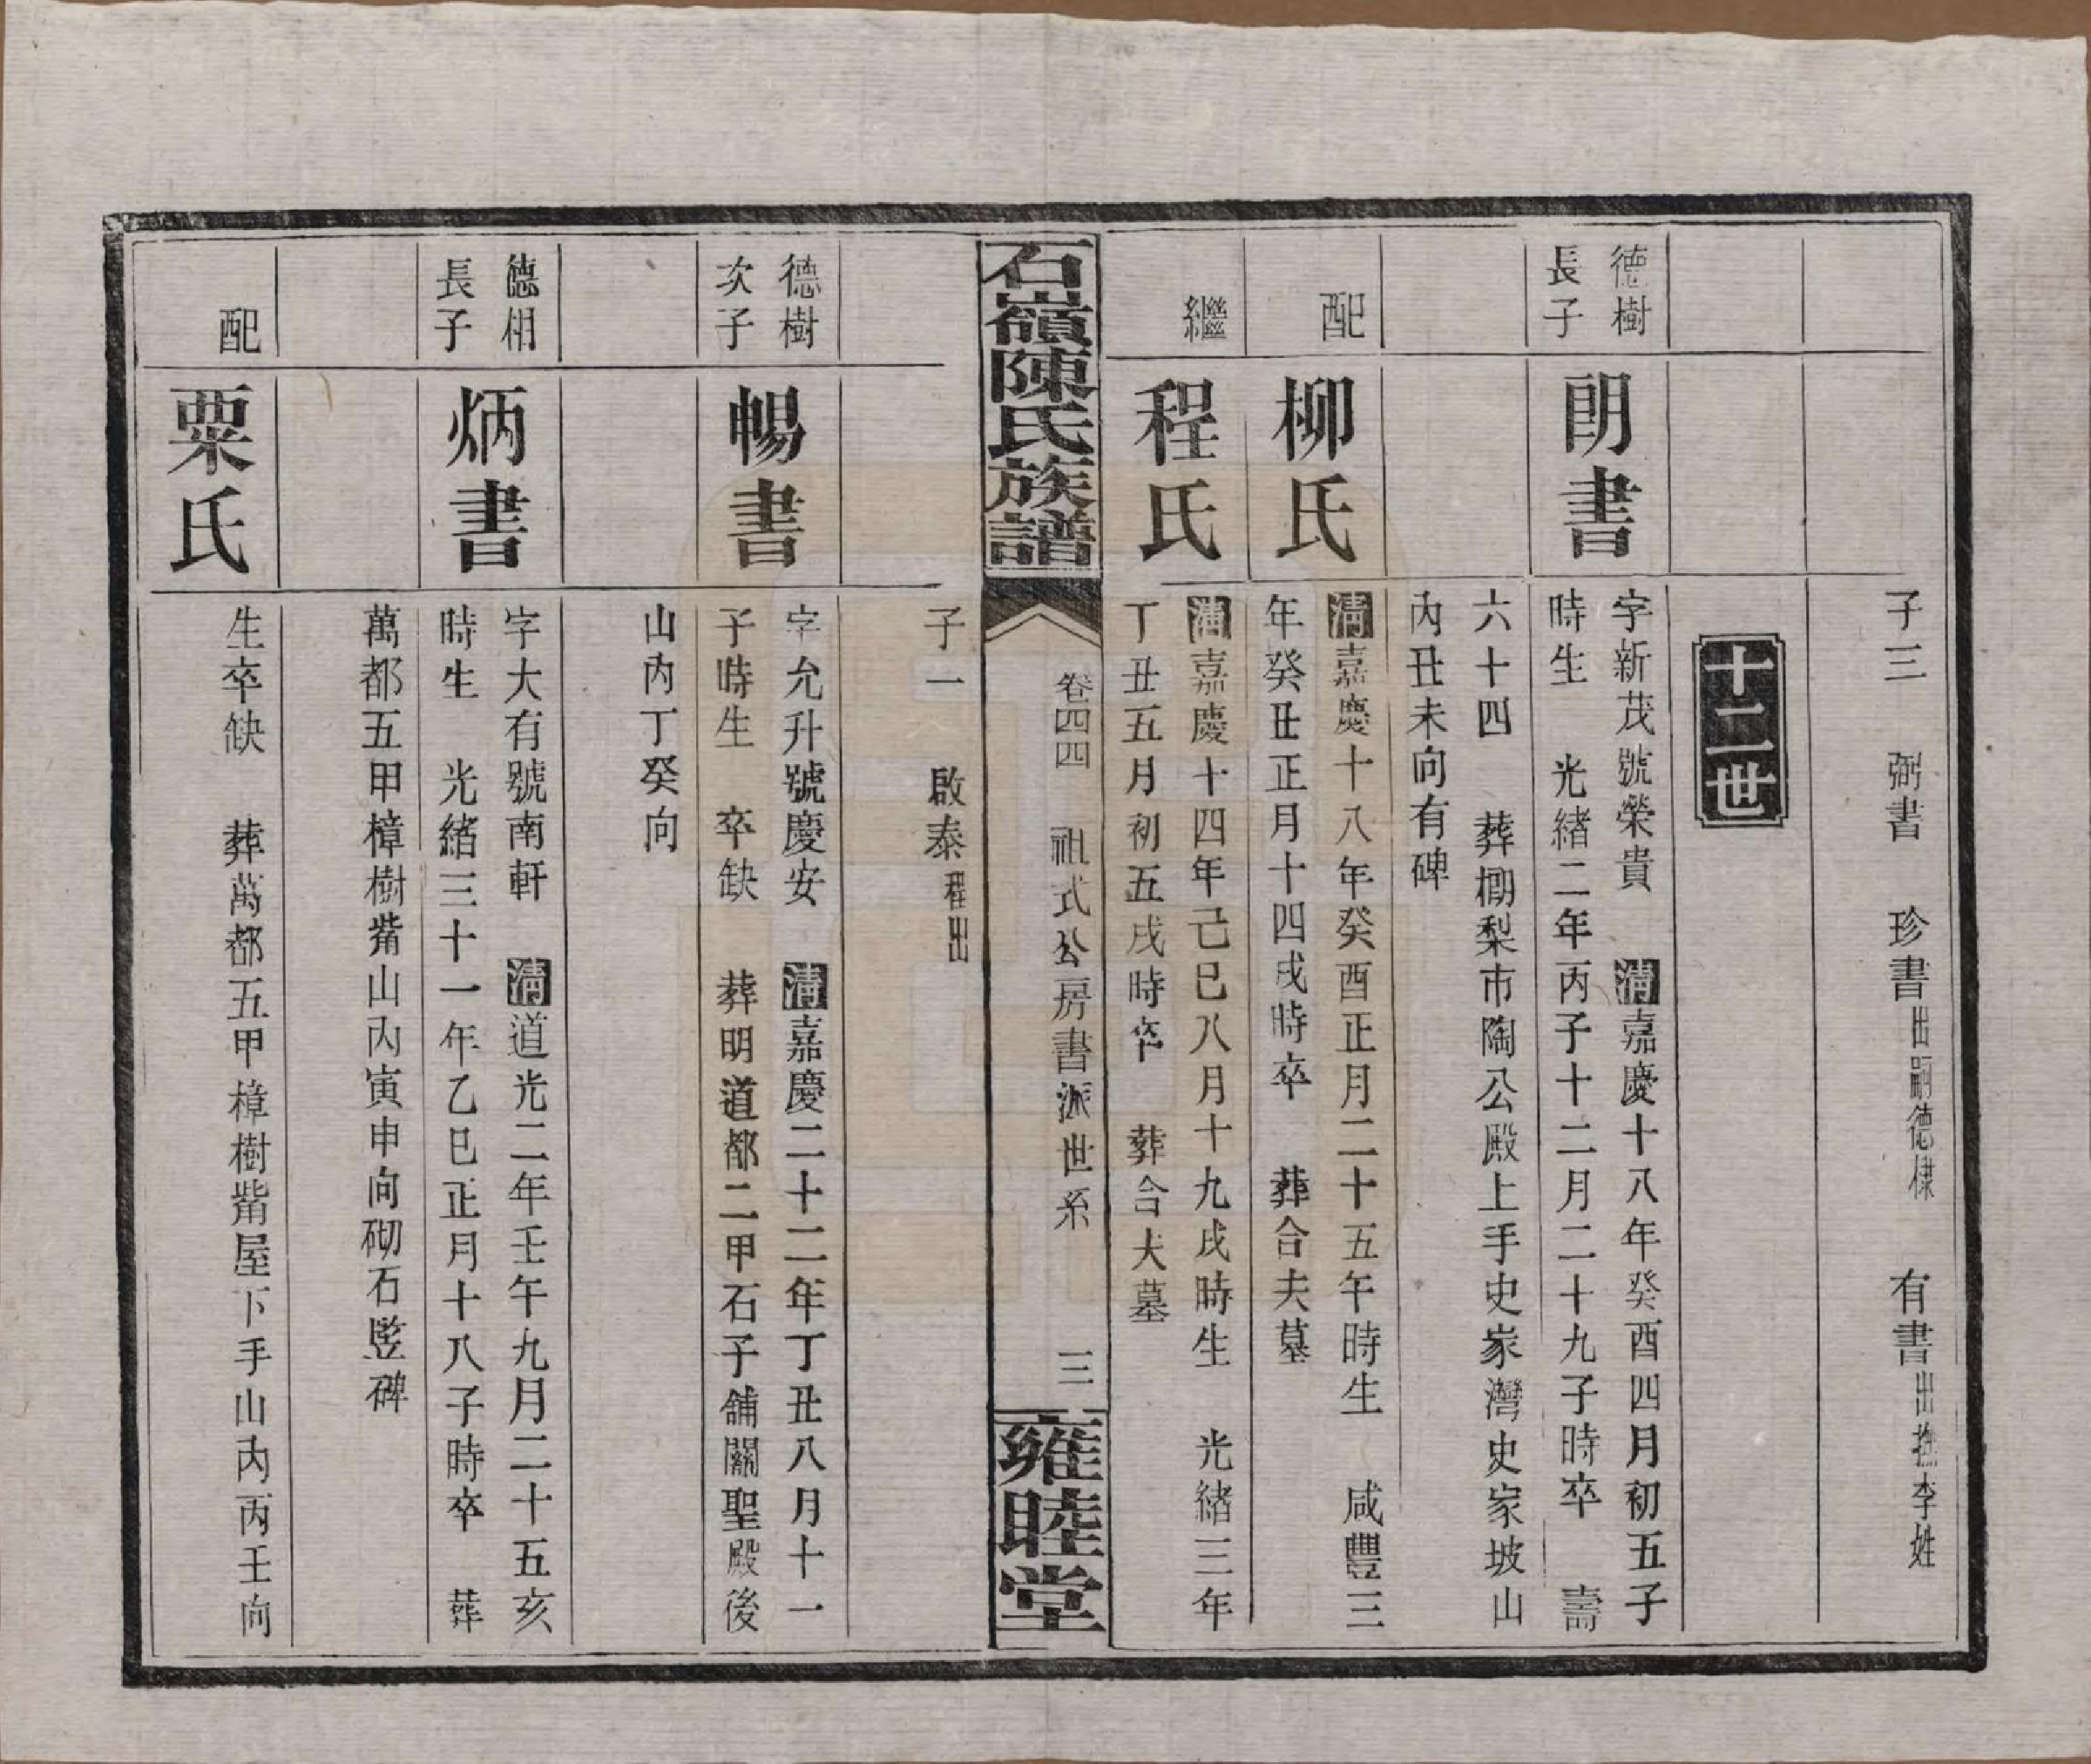 子三　弼書　珍書出嗣德棣　有書出撫李姓
十二世
德樹
長子
朗書
字新茂號榮貴　清嘉慶十八年癸酉四月初五子
時生　光緒二年丙子十二月二十九子時卒　壽
六十四　葬㮾梨市陶公殿上手史家灣史家坡山
內丑未向有碑
配
柳氏
清嘉慶十八年癸酉正月二十五午時生　咸豐三
年癸丑正月十四戌時卒　葬合夫墓
繼
程氏
清嘉慶十四年己巳八月十九戌時生　光緒三年
丁丑五月初五戌時卒　葬合夫墓
石嶺陳氏族譜
卷四四　祖式公房書派世系　三
雍睦堂
子一　啟泰程出
德樹
次子
暢書
字允升號慶安　清嘉慶二十二年丁丑八月十一
子時生　卒缺　葬明道都二甲石子舖關聖殿後
山內丁癸向
德相
長子
炳書
字大有號南軒　清道光二年壬午九月二十五亥
時生　光緒三十一年乙巳正月十八子時卒　葬
萬都五甲樟樹觜山內寅申向砌石竪碑
配
粟氏
生卒缺　葬萬都五甲樟樹觜屋下手山內丙壬向